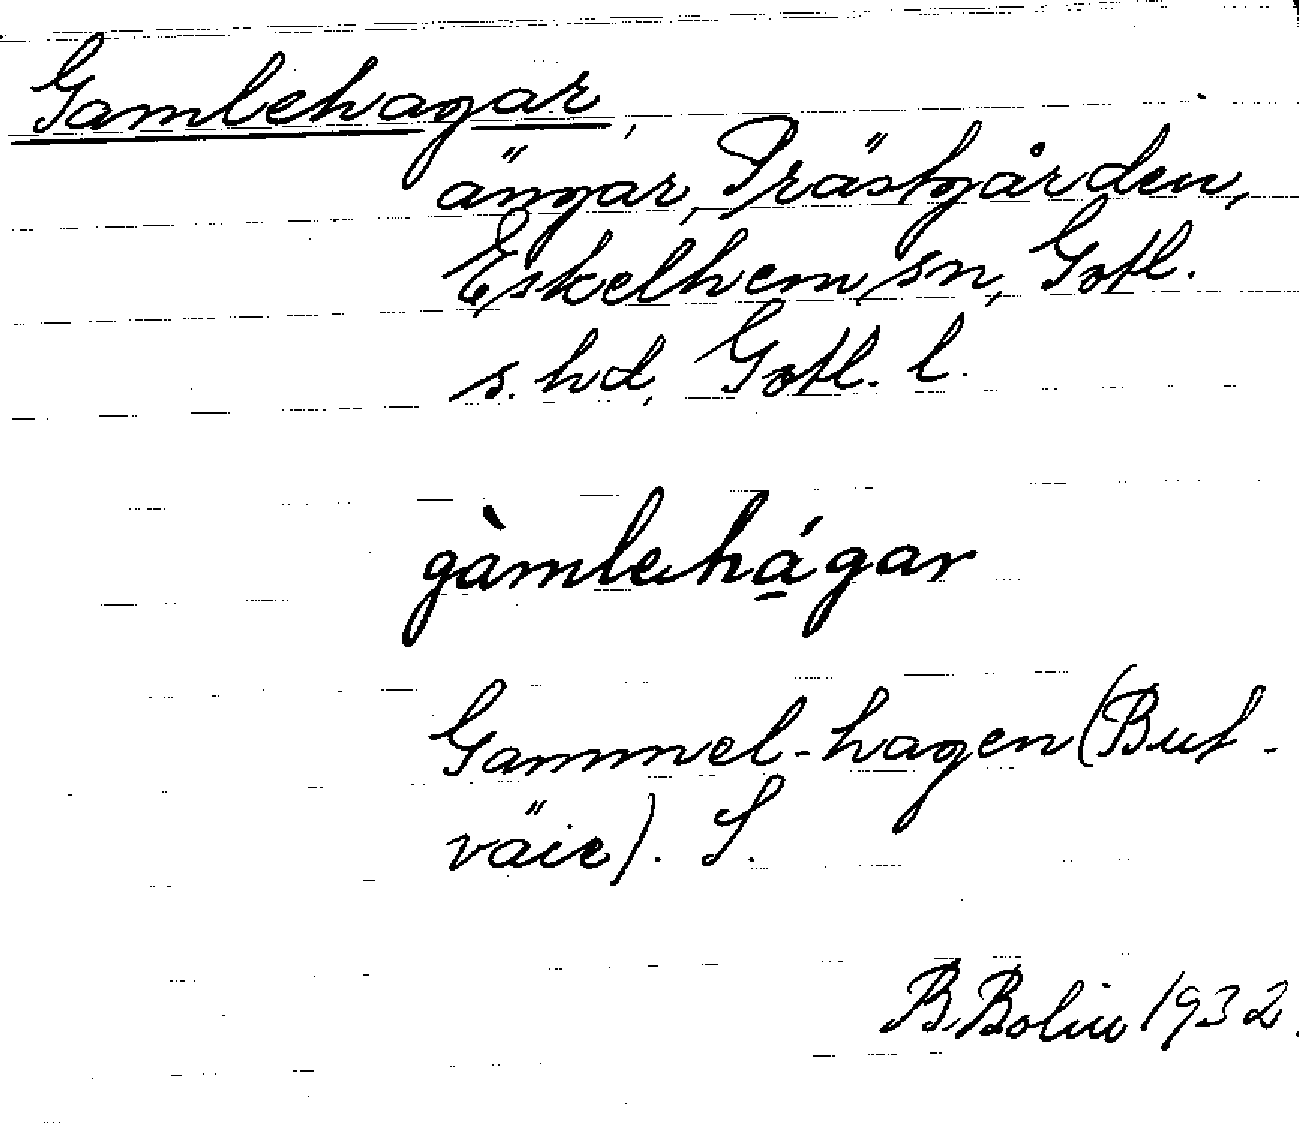 Gamlehagar,
ängar, Prästgården,
Eskelhem sn, Gotl.
s. hd, Gotl. l.
gàmlehá̱gar
Gammel-hagen (But-
väie). S.
B. Bolin 1932.